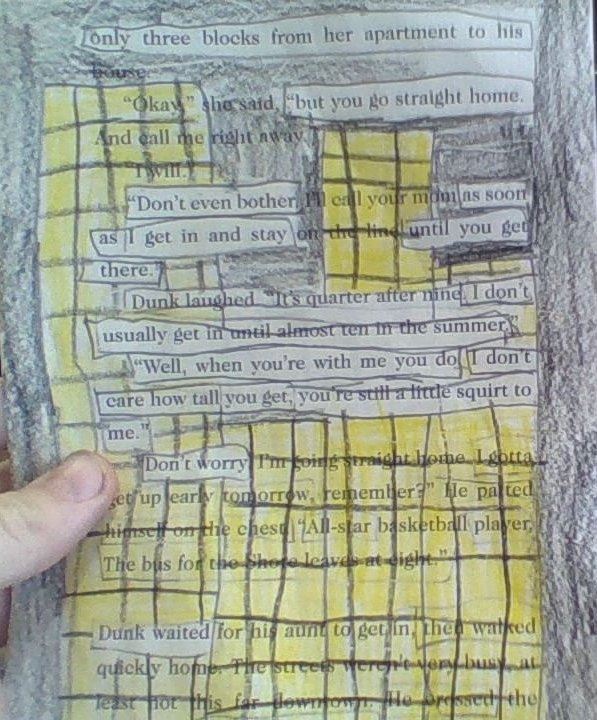 only three blocks from her apartment to his
house.
"Okay," she said, "but you go straight home.
And call me right away."
"I will."
"Don't even bother, I'll call your mom as soon
as I get in and stay on the line until you get
there."
Dunk laughed. "It's quarter after nine. I don't
usually get in until almost ten in the summer."
"Well, when you're with me you do. I don't
care how tall you get, you're still a little squirt to
me."
"Don't worry. I'm going straight home. I gotta
get up early tomorrow, remember?" He patted
himself on the chest. "All-star basketball player.
The bus for the Shore leaves at eight."
Dunk waited for his aunt to get in, then walked
quickly home. The streets weren't very busy, at
least not this far downtown. He crossed the